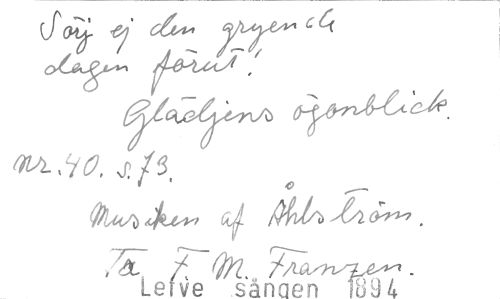 Sörj ej den gryende
dagen förut!
Glädjens ögonblick.
nr. 40. s. 73.
Musiken af Åhlström.
Ta F. M. Franzen.
Lefve sången 1894